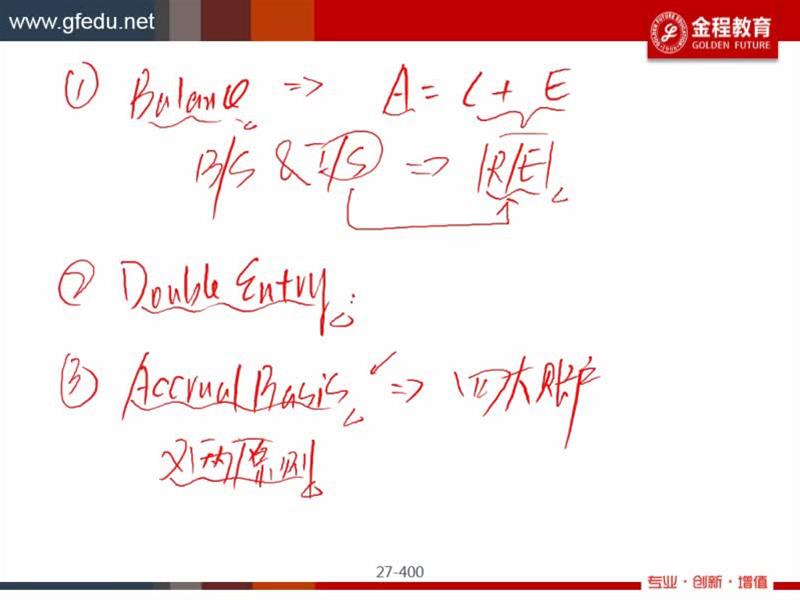 www.gfedu.net
金程教育
GOLDEN FUTURE
① Balance => A = L + E
B/S & I/S => R/E
② Double Entry
③ Accrual Basis ✓ => 四大账户
27-400
专业·创新·增值